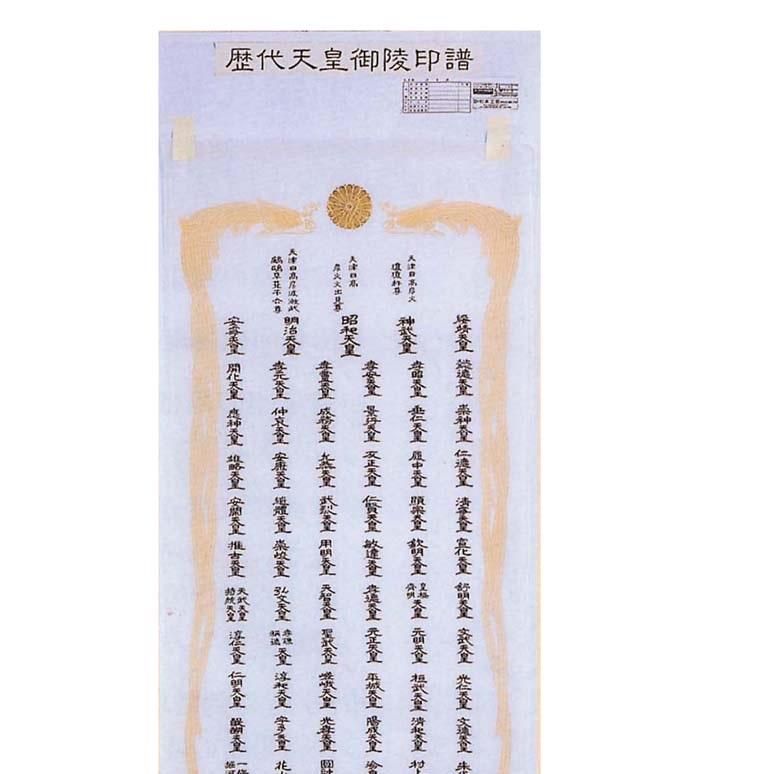 歴代天皇御陵印譜
天津日高彦火
瓊瓊杵尊
天津日高
彦火火出見尊
天津日高彦波瀲武
鸕鶿草葺不合尊
綏靖天皇
神武天皇
昭和天皇
明治天皇
安寧天皇
懿德天皇
孝昭天皇
孝安天皇
孝靈天皇
孝元天皇
開化天皇
崇神天皇
垂仁天皇
景行天皇
成務天皇
仲哀天皇
應神天皇
仁德天皇
履中天皇
反正天皇
允恭天皇
安康天皇
雄略天皇
清寧天皇
顕宗天皇
仁賢天皇
武烈天皇
繼體天皇
安閑天皇
宣化天皇
欽明天皇
敏達天皇
用明天皇
崇峻天皇
推古天皇
舒明天皇
皇極
齊明
天皇
孝德天皇
天智天皇
弘文天皇
天武天皇
持統天皇
文武天皇
元明天皇
元正天皇
聖武天皇
孝謙
稱德
天皇
淳仁天皇
光仁天皇
桓武天皇
平城天皇
嵯峨天皇
淳和天皇
仁明天皇
文德天皇
清和天皇
陽成天皇
光孝天皇
宇多天皇
醍醐天皇
村上
花山
一條